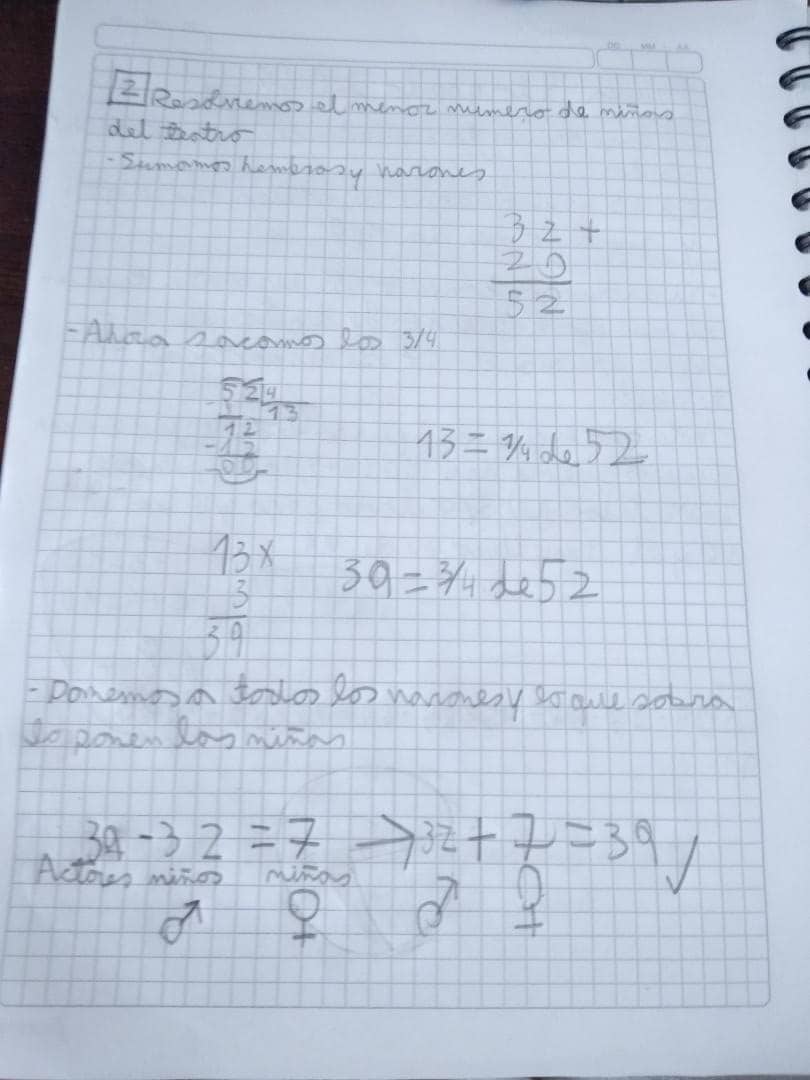 2 Resolvemos el menor numero de niñas
del teatro
- Sumamos hembras y varones
32 +
20
52
- Ahora sacamos los 3/4
52 4
13
12
-12
00
13 = 1/4 de 52
13 x
3
39
39 = 3/4 de 52
- Ponemos a todos los varones y lo que sobra
lo ponen las niñas
39 - 32 = 7 → 32 + 7 = 39 ✓
Actores niños niñas
♂ ♀ ♂ ♀